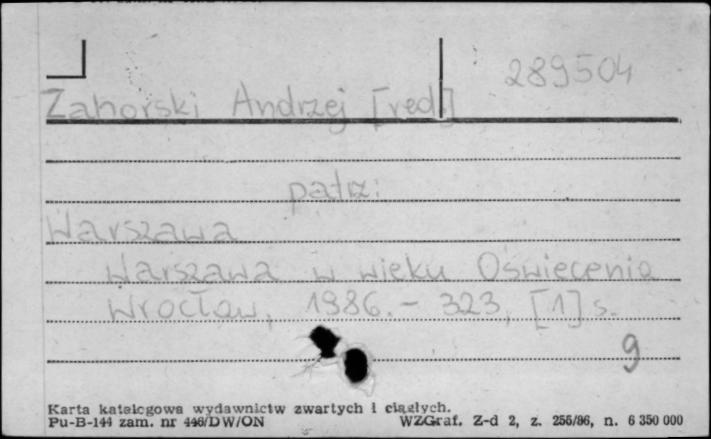 289504
Zahorski Andrzej [red.]
patrz:
Warszawa
Warszawa w wieku Oświecenia
Wrocław, 1986. - 323, [1] s.
9
Karta katalogowa wydawnictw zwartych i ciągłych.
Pu-B-144 zam. nr 446/DW/ON WZGraf. Z-d 2, z. 256/86, n. 6 350 000